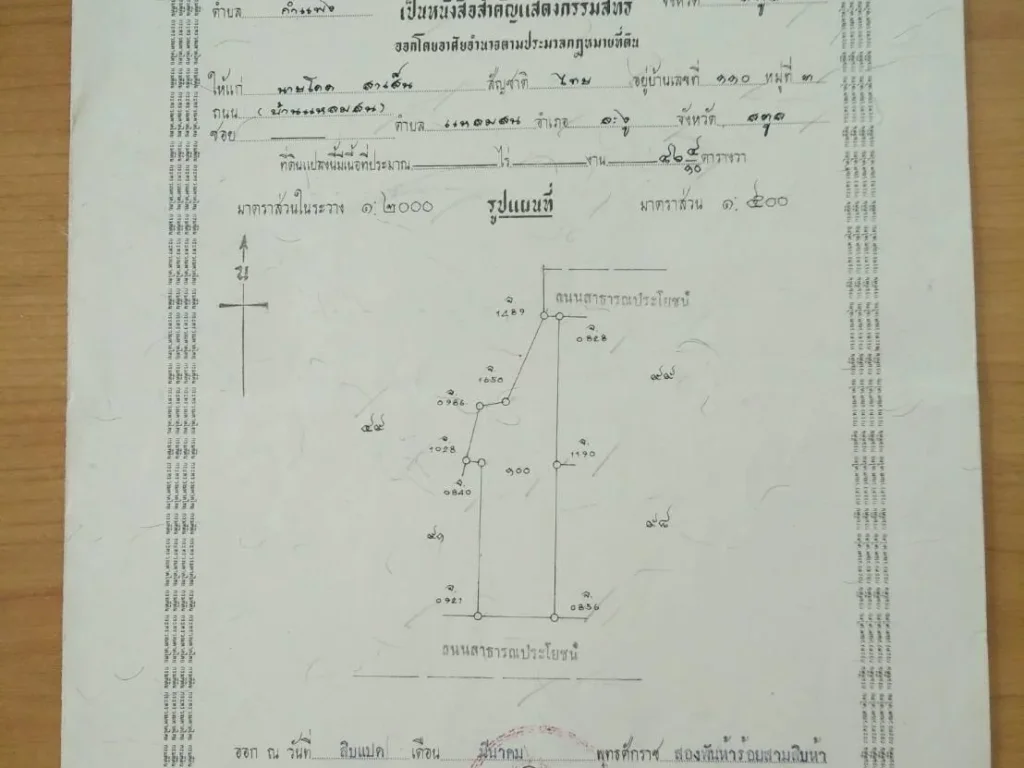 ตำบล กำแพง เป็นหนังสือสำคัญแสดงกรรมสิทธิ์ จังหวัด
ออกโดยอาศัยอำนาจตามประมวลกฎหมายที่ดิน
ให้แก่ นายโดด สาเส็น สัญชาติ ไทย อยู่บ้านเลขที่ ๑๑๐ หมู่ที่ ๓
ถนน (บ้านแหลมสน)
ซอย ตำบล แหลมสน อำเภอ ละงู จังหวัด สตูล
ที่ดินแปลงนี้มีเนื้อที่ประมาณ ไร่ งาน ๔๖ ๔/๑๐ ตารางวา
มาตราส่วนในระวาง ๑:๒๐๐๐ รูปแผนที่ มาตราส่วน ๑:๕๐๐
น
ถนนสาธารณประโยชน์
จ. 1489
จ. 0828
จ. 1650
๙๙
จ. 0986
๕๙
จ. 1028
จ. 1190
๑๐๐
จ. 0840
๙๘
๙๑
จ. 0921
จ. 0856
ถนนสาธารณประโยชน์
ออก ณ วันที่ สิบแปด เดือน มีนาคม พุทธศักราช สองพันห้าร้อยสามสิบห้า